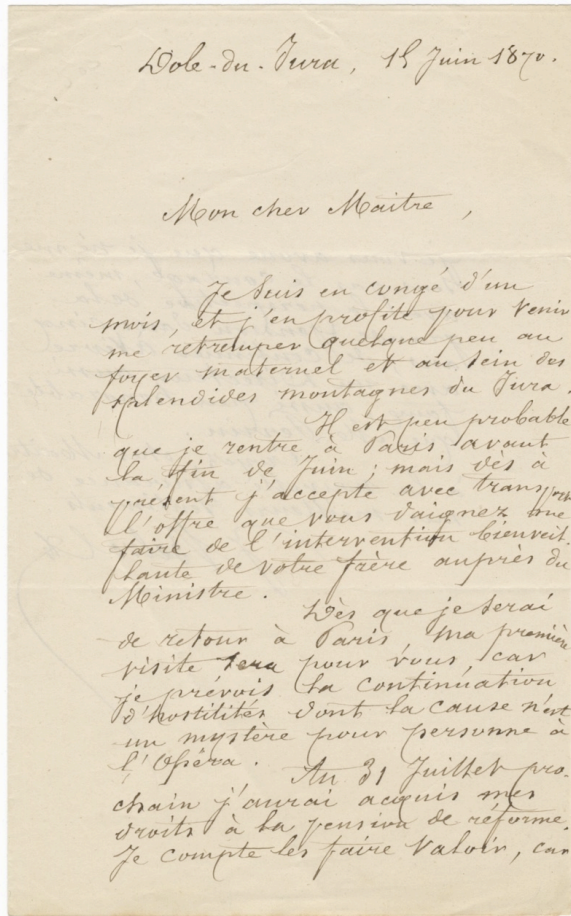 Dole-du-Jura, 15 Juin 1870.
Mon cher Maitre,
Je suis en congé d'un
mois, et j'en profite pour venir
me retremper quelque peu au
foyer maternel et au sein des
splendides montagnes du Jura.
Il est peu probable
que je rentre à Paris avant
la fin de Juin ; mais dès à
présent j'accepte avec transport
l'offre que vous daignez me
faire de l'intervention bienveil-
lante de votre frère auprès du
Ministre.
Dès que je serai
de retour à Paris, ma première
visite sera pour vous, car
je prévois la continuation
d'hostilités dont la cause n'est
un mystère pour personne à
l'Opéra.
Au 31 Juillet pro-
chain j'aurai acquis mes
droits à la pension de réforme.
Je compte les faire valoir, car